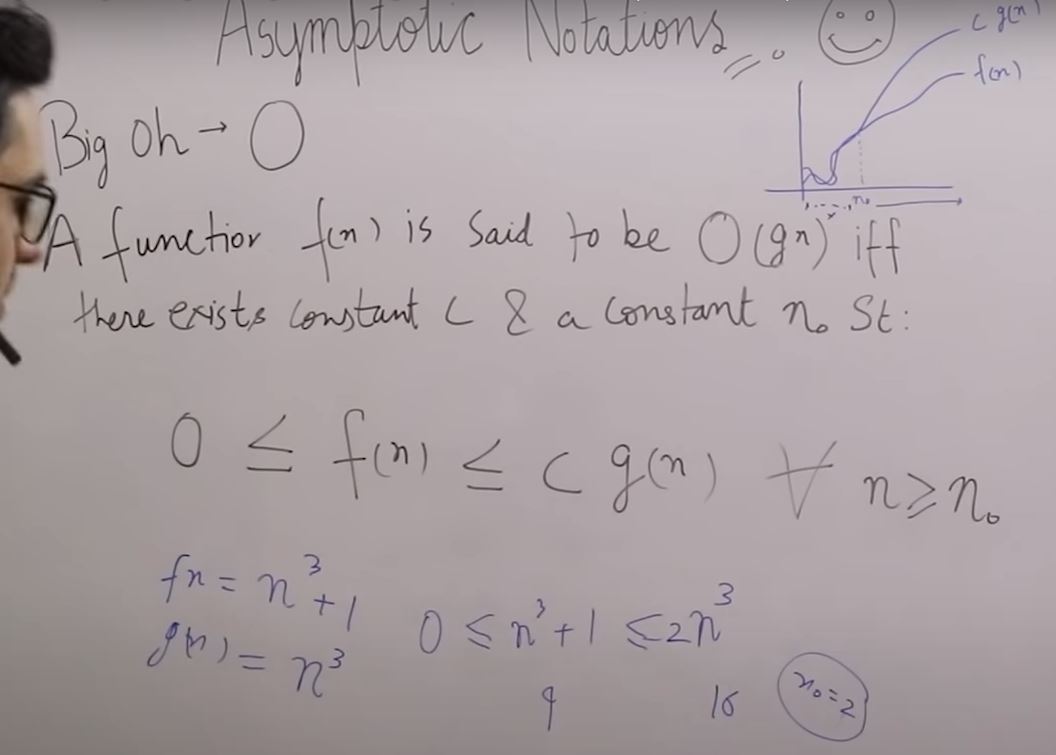 Asymptotic Notations
c g(n)
f(n)
n₀
Big Oh → O
A function f(n) is said to be O(gn) iff
there exists constant c & a constant n₀ St:
0 ≤ f(n) ≤ c g(n) ∀ n ≥ n₀
fn = n³ + 1
g(n) = n³
0 ≤ n³ + 1 ≤ 2n³
9 16
n₀ = 2